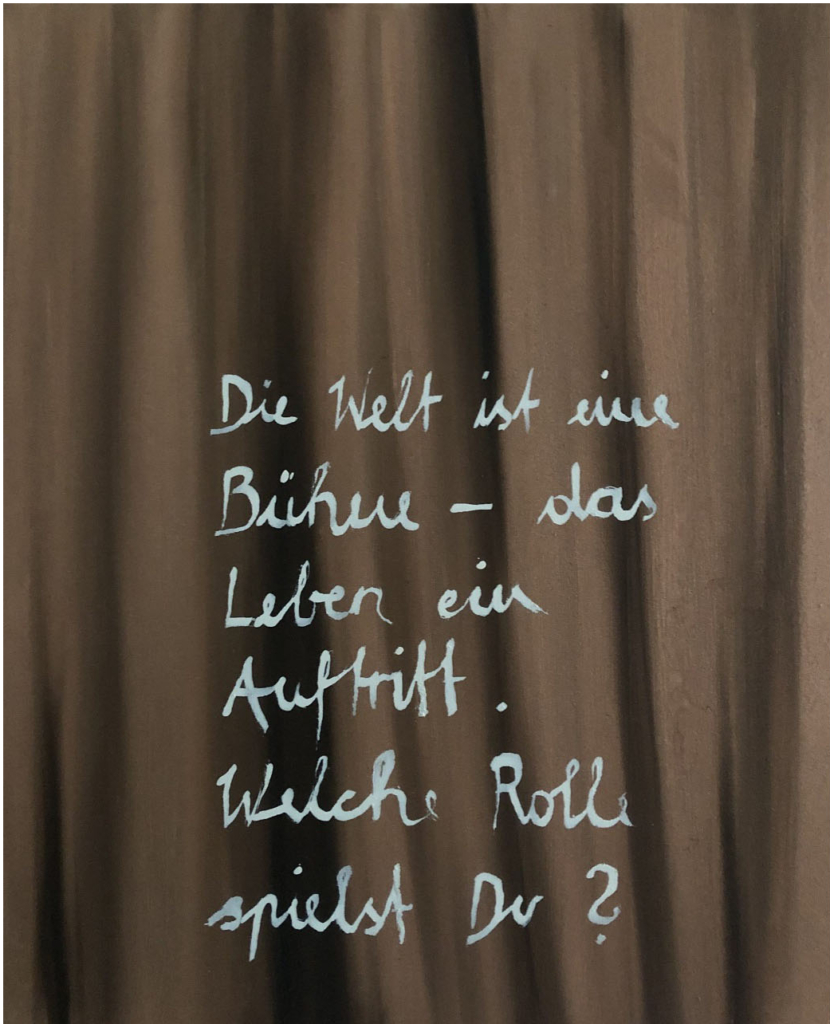 Die Welt ist eine
Bühne – das
Leben ein
Auftritt.
Welche Rolle
spielst Du?